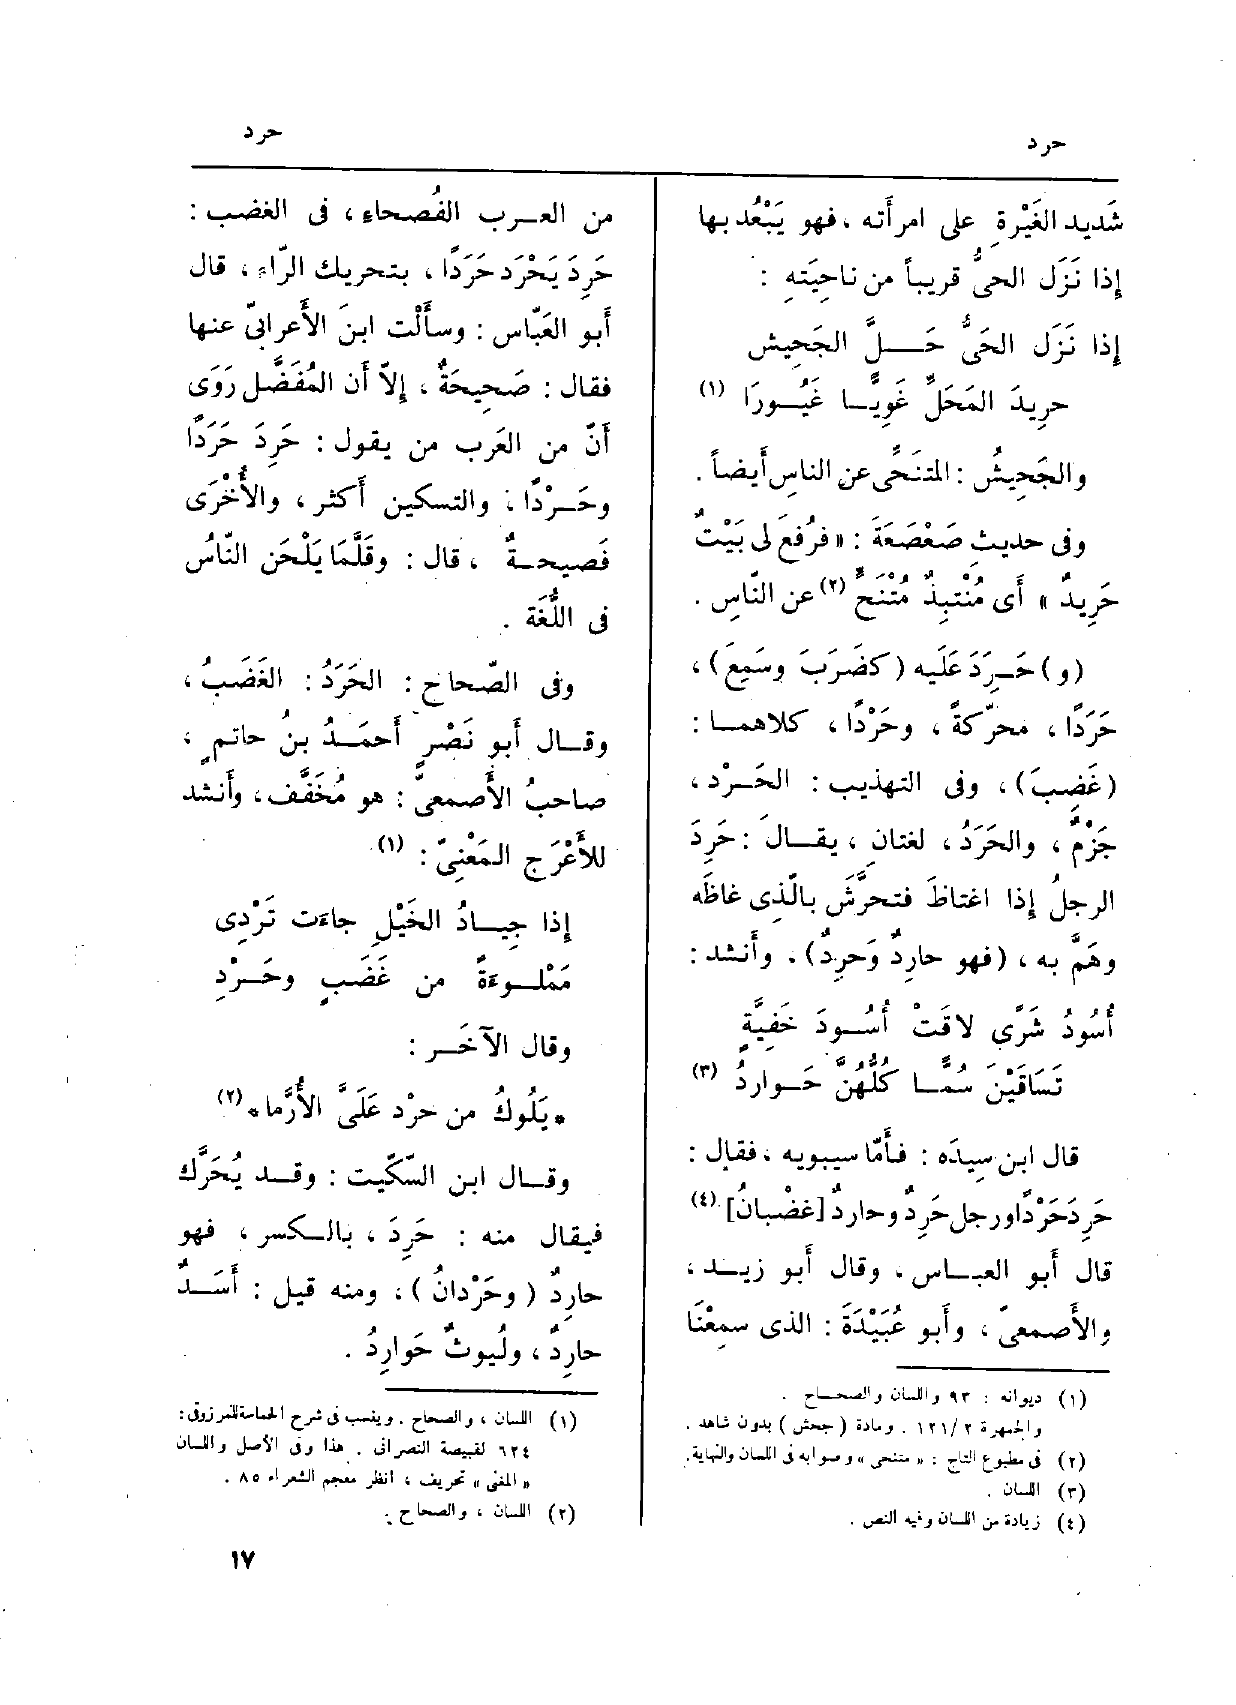 حرد
حرد
شَديد الغَيْرةِ على امرأَته ، فهو يَبْعُد بها
إِذا نَزَل الحىُّ قريباً من ناحِيَتِه :
إِذا نَزَل الحَىُّ حَــلَّ الجَحيش
حرِيدَ المَحَلِّ غَوِيًّــا غَيُــورَا (١)
والجَحِيشُ : المتنَحِّى عن الناسِ أَيضاً .
وفى حديثِ صَعْصَعَةَ : « فرُفعَ لى بَيْتٌ
حَرِيدٌ » أَى مُنْتبِذٌ مُتْنَحٍّ (٢) عن النَّاسِ .
(و) حَــرِدَ عَلَيه (كضَرَبَ وسَمِعَ) ،
حَرَدًا ، محرّكةً ، وحَرْدًا ، كلاهمــا :
(غَضِبَ) ، وفى التهذيب : الحَــرْد ،
جَزْمٌ ، والحَرَدُ ، لغتانِ ، يقــال : حَرِدَ
الرجلُ إِذا اغتاظَ فتحرَّشَ بالَّذِى غاظَه
وهَمَّ به ، (فهو حارِدٌ وَحرِدٌ) . وأَنشد :
أُسُودُ شَرًى لاقَتْ أُسُــودَ خَفِيَّةٍ
تَسَاقَيْنَ سُمًّــا كُلُّهُنَّ حَــوارِدُ (٣)
قال ابن سِيدَه : فأَمّا سيبويه ، فقال :
حَرِدَ حَرْدًا ورجل حَرِدٌ وحاردٌ [غضْبانُ] (٤)
قال أَبو العبــاس ، وقال أَبو زيــد ،
والأَصمعىّ ، وأَبو عُبَيْدَةَ : الذى سمِعْنَا
(١) ديوانه : ٩٣ واللسان والصحــاح .
والجمهرة ٢/ ١٢١ . ومادة (جحش) بدون شاهد .
(٢) فى مطبوع التاج : « متنحى » وصوابه فى اللسان والنهاية .
(٣) اللسان .
(٤) زيادة من اللسان وفيه النص .
من العــرب الفُصحاءِ ، فى الغضب :
حَرِدَ يَحْرَد حَرَدًا ، بتحريك الرّاءِ ، قال
أَبو العَبّاس : وسأَلْت ابنَ الأَعرابىّ عنها
فقال : صَحِيحَةٌ ، إِلاّ أَن المُفَضَّل رَوَى
أَنّ من العَرب من يقول : حَرِدَ حَرَدًا
وحَــرْدًا ، والتسكين أَكثر ، والأُخْرَى
فَصيحــةٌ ، قال : وقَلَّمَا يَلْحَن النّاسُ
فى اللُّغَة .
وفى الصّحاح : الحَرَدُ : الغَضَبُ ،
وقــال أَبو نَصْرٍ أَحمَــدُ بنُ حاتمٍ ،
صاحبُ الأَصمعىّ : هو مُخَفَّف ، وأَنشد
للأَعْرَج المَعْنِىّ : (١)
إِذا جِيــادُ الخَيْلِ جاءَت تَرْدِى
مَمْلــوءَةً من غَضَبٍ وحَــرْدِ
وقال الآخَــر :
* يَلُوكُ من حرْد عَلَىَّ الأُرَّما * (٢)
وقــال ابن السّكّيت : وقــد يُحَرَّك
فيقال منه : حَرِدَ ، بالــكسر ، فهو
حارِدٌ (وحَرْدانُ) ، ومنه قيل : أَسَــدٌ
حارِدٌ ، ولُيوثٌ حَوارِدُ .
(١) اللسان ، والصحاح . وينسب فى شرح الحماسة للمرزوقى :
٦٢٤ لقبيصة النصرانى . هذا وفى الأصل واللسان
« المغنى » تحريف ، انظر معجم الشعراء ٨٥ .
(٢) اللسان ، والصحاح .
١٧